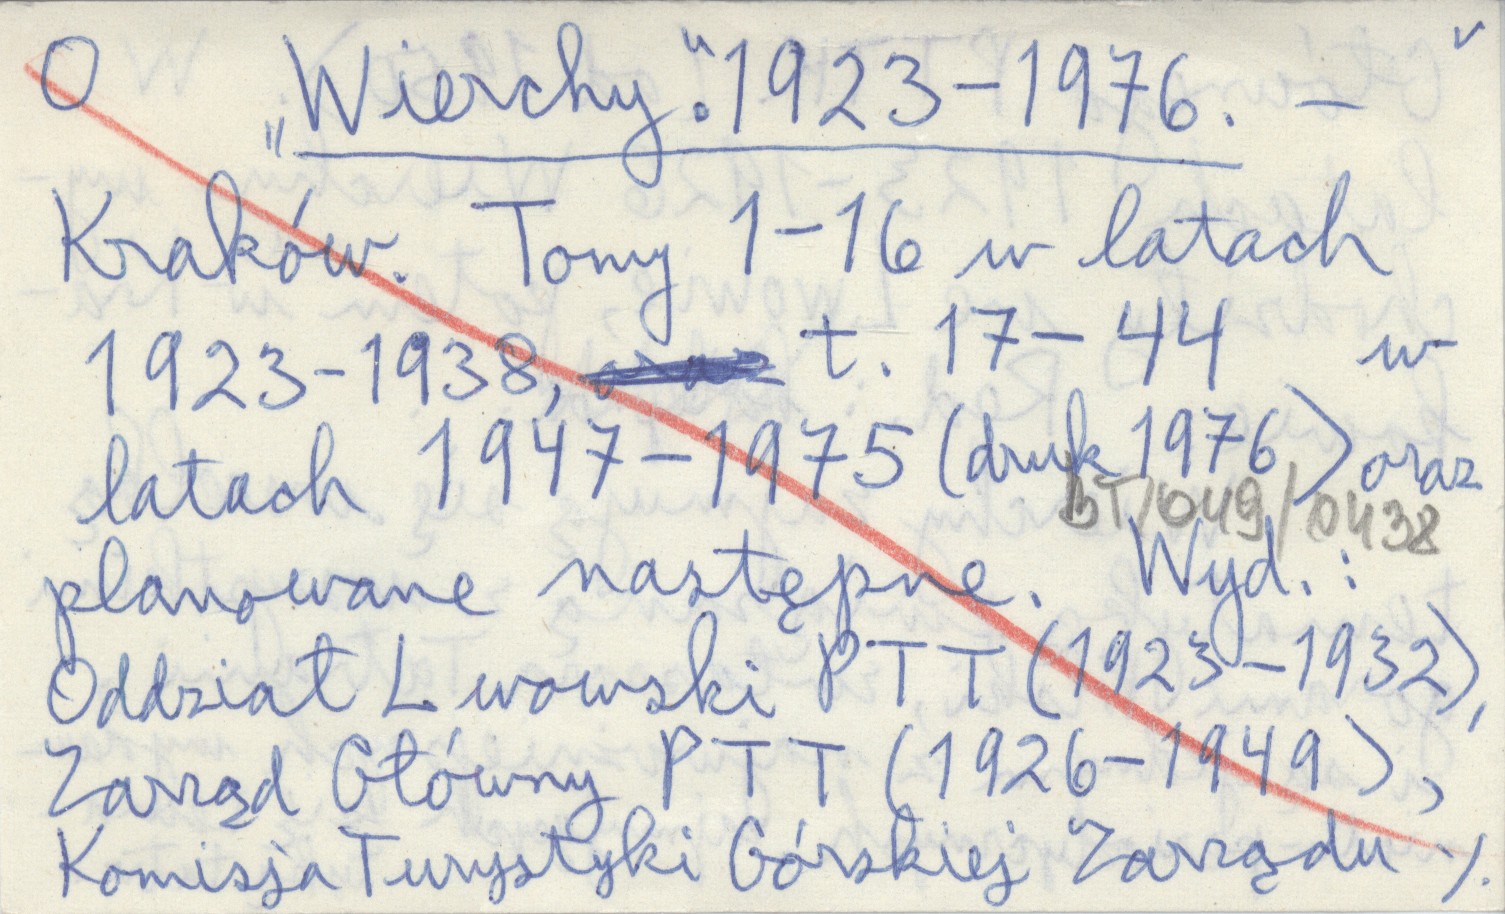 O „Wierchy." 1923-1976. —
Kraków. Tomy 1-16 w latach
1923-1938, t. 17-44 w
latach 1947-1975 (druk 1976) oraz
BT/049/0438
planowane następne. Wyd.:
Oddział Lwowski PTT (1923-1932),
Zarząd Główny PTT (1926-1949),
Komisja Turystyki Górskiej Zarządu ./.